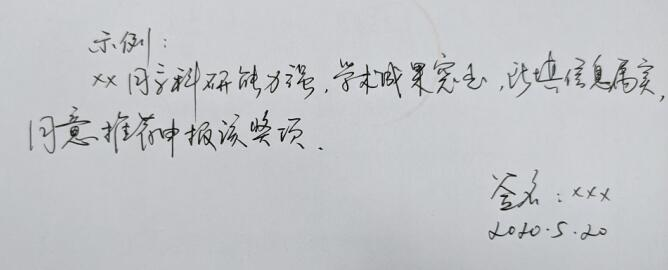 示例：
xx同学科研能力强，学术成果突出，所填信息属实，
同意推荐申报该奖项．
签名：xxx
2020.5.20